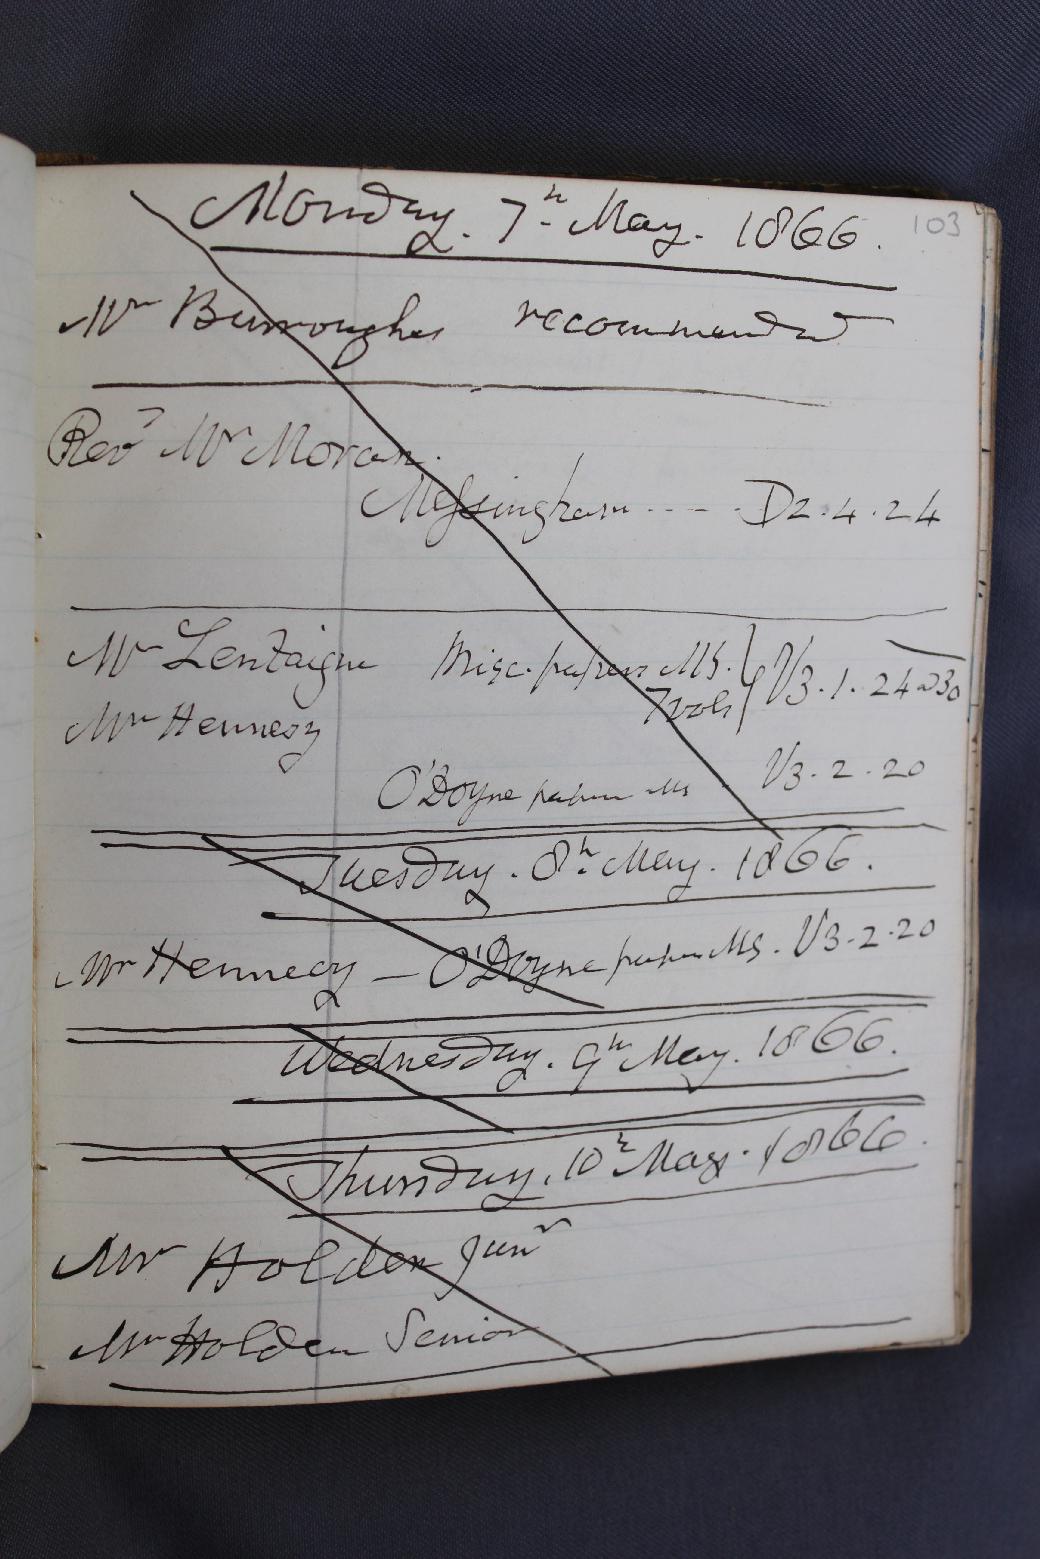 103
Monday. 7th May. 1866.
Mr Burroughes recommended
Revd Mr Moran.
Messingham ---- D2.4.24
Mr Lentaigne Misc. papers MS. } V3.1.24 to 30
7 vols
Mr Hennesy
O'Doyne papers Ms V3.2.20
Tuesday. 8th May. 1866.
Mr Hennecy — O'Doyne papers MS. V3.2.20
Wednesday. 9th May. 1866.
Thursday. 10th May. 1866.
Mr Holden Junr
Mr Holden Senior